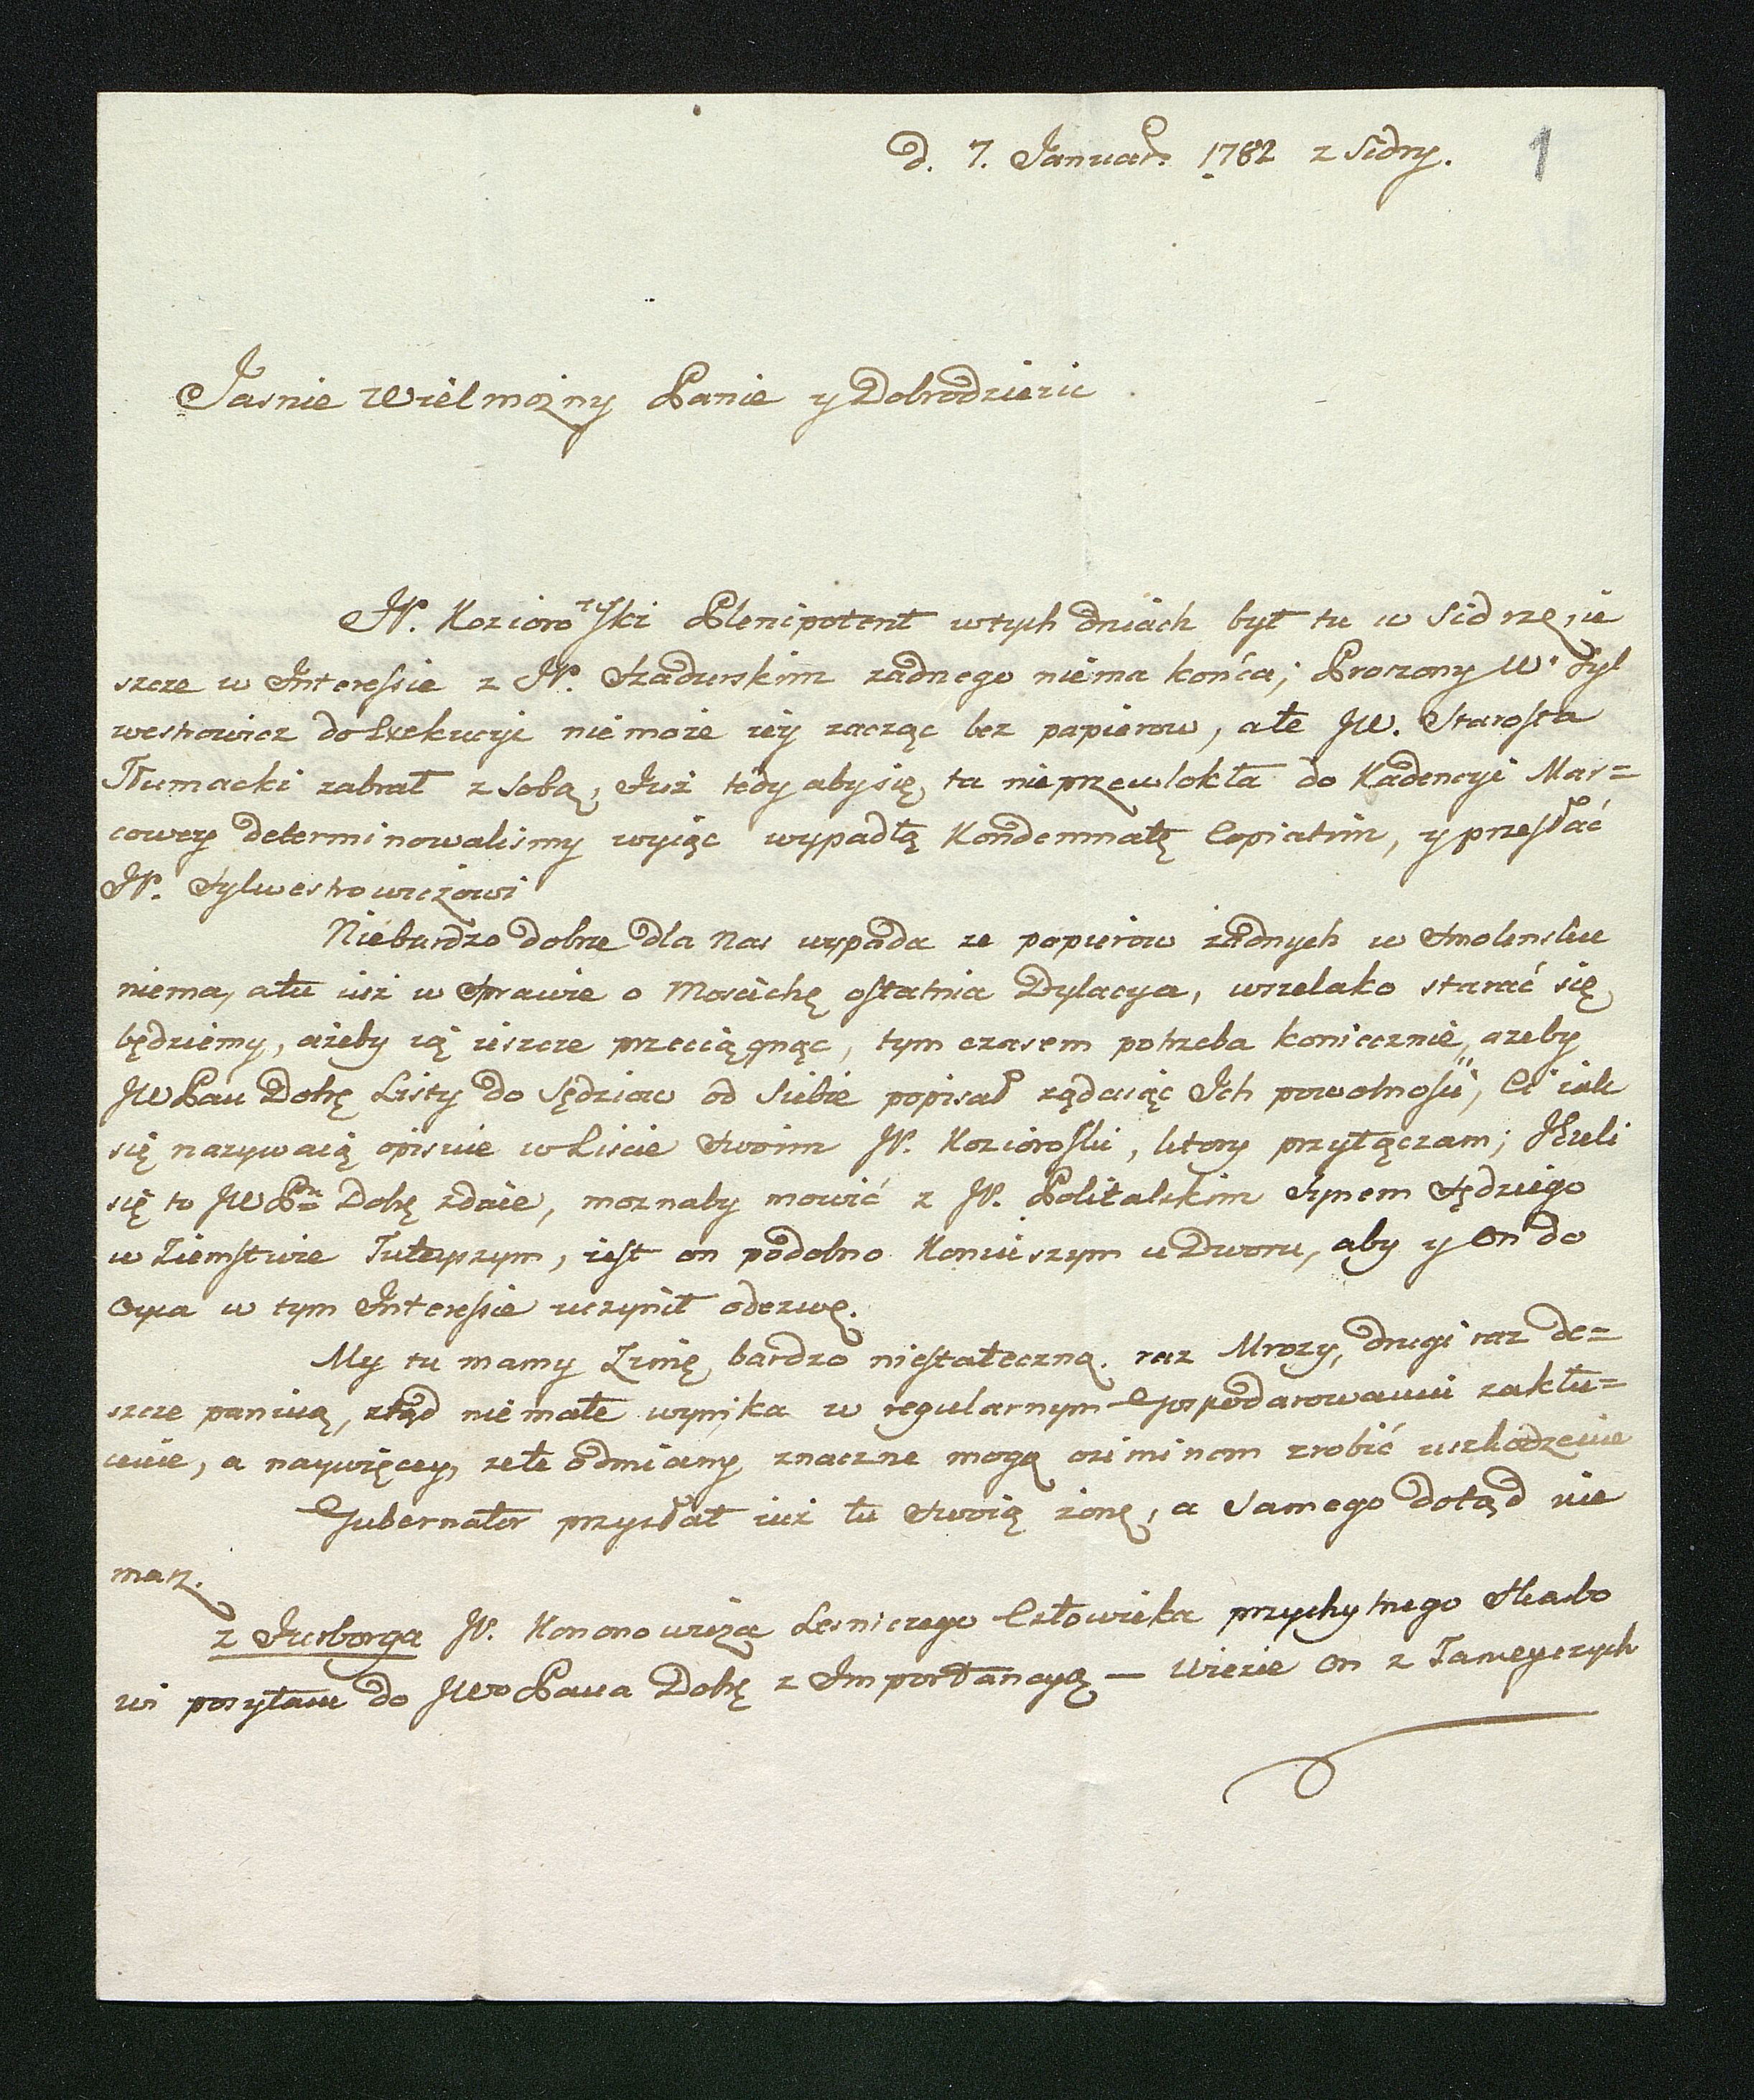 d. 7. Januar. 1782 z Sidry. 1
Jasnie Wielmozny Panie y Dobrodzieiu
JP. Koziorowski Plenipotent wtych dniach był tu w Sidrze, ie
szcze w Interessie z JP. Szadurskim zadnego niema końca; Proszony W. Syl
westrowicz do Exekucyi niemoze iey zacząc bez papierow, ale JW. Starosta
Tłumacki zabrał z sobą, Iuż tedy aby się ta nieprzewlokła do Kadencyi Mar=
cowey determinowalismy wyiąc wypadłą Kondemnatę Copiatim, y przesłać
JP. Sylwestrowiczowi
Niebardzo dobrze dla Nas wypada ze papierow żadnych w Smolensku
niema, a tu iuż w Sprawie o Moscichę ostatnia Dylacya, wszelako starać się
będziemy, ażeby ią ieszcze przeciągnąc, tym czasem potrzeba koniecznie, azeby
JW Pan Dobr Listy do Sędziow od Siebie popisał ządaiąc Ich powolności, Ci iak
się nazywaią opisuie w Liscie Swoim JP. Kozioroski, ktory przyłączam; Jezeli
się to JW Pu Dobr zdaie, moznaby mowić z JP. Politalskim Synem Sędziego
w Ziemstwie Tuteyszym, iest on podobno Koniuszym u Dworu, aby y On do
Oyca w tym Interessie uczynił odezwę.
My tu mamy Zimę bardzo niestateczną. raz Mrozy, drugi raz de=
szcze panuią, ztąd niemałe wynika w regularnym Gospodarowaniu zakłu=
cenie, a naywięcey, ze te odmiany znaczne mogą oziminom zrobić uszkodzenie
Gubernator przysłał iuż tu Swoią zonę, a Samego dotąd nie
masz.
z Jurborga JP. Kononowicza Lesniczego Człowieka przychytnego Skarbo
wi posyłam do JWo Pana Dobr z Importancyą — Wiezie On z Tameyszych